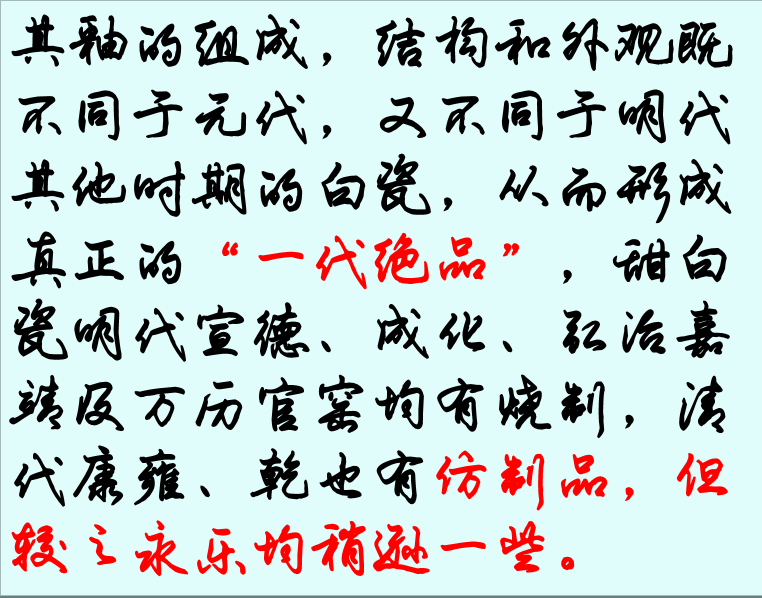 其釉的组成，结构和外观既
不同于元代，又不同于明代
其他时期的白瓷，从而形成
真正的“一代绝品”，甜白
瓷明代宣德、成化、弘治嘉
靖及万历官窑均有烧制，清
代康雍、乾也有仿制品，但
较之永乐均稍逊一些。